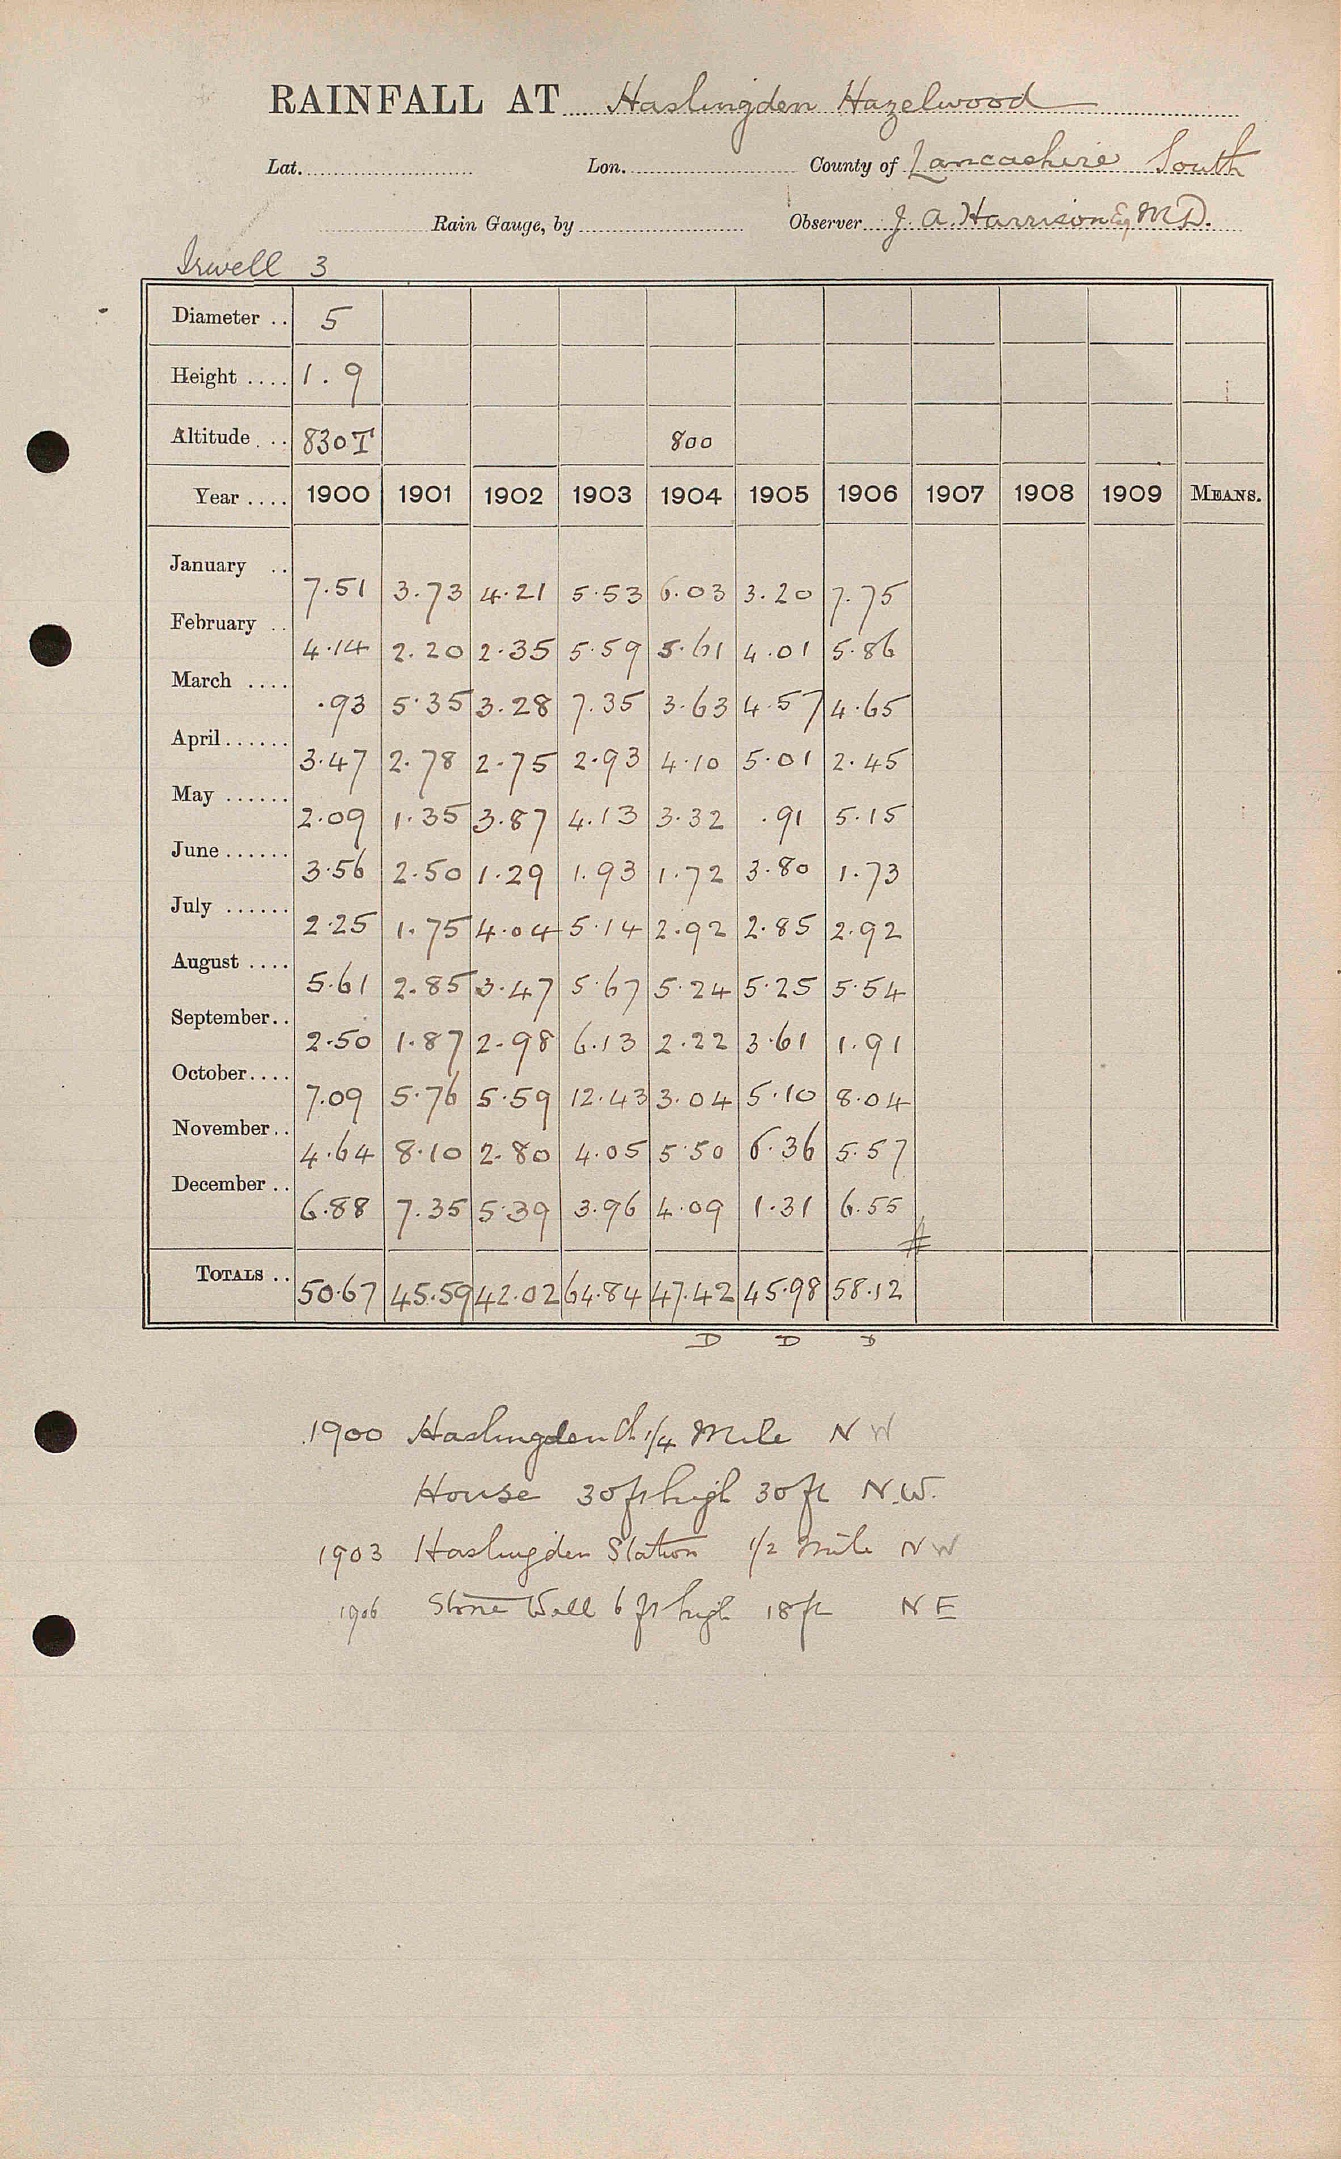 RAINFALL AT Haslingden Hazelwood
Lat. Lon. County of Lancashire South
Rain Gauge, by Observer J. A. Harrison Esq MD.
Irwell 3
Diameter .. 5
Height .... 1.9
Altitude ... 830T 800
Year .... 1900 1901 1902 1903 1904 1905 1906 1907 1908 1909 MEANS.
January .. 7.51 3.73 4.21 5.53 6.03 3.20 7.75
February .. 4.14 2.20 2.35 5.59 5.61 4.01 5.86
March .... .93 5.35 3.28 7.35 3.63 4.57 4.65
April...... 3.47 2.78 2.75 2.93 4.10 5.01 2.45
May ...... 2.09 1.35 3.87 4.13 3.32 .91 5.15
June...... 3.56 2.50 1.29 1.93 1.72 3.80 1.73
July ...... 2.25 1.75 4.04 5.14 2.92 2.85 2.92
August .... 5.61 2.85 3.47 5.67 5.24 5.25 5.54
September.. 2.50 1.87 2.98 6.13 2.22 3.61 1.91
October.... 7.09 5.76 5.59 12.43 3.04 5.10 8.04
November.. 4.64 8.10 2.80 4.05 5.50 6.36 5.57
December .. 6.88 7.35 5.39 3.96 4.09 1.31 6.55
TOTALS .. 50.67 45.59 42.02 64.84 47.42 45.98 58.12
D D D
1900 Haslingden Ch 1/4 Mile N W
House 30ft high 30ft N.W.
1903 Haslingden Station 1/2 mile N W
1906 Stone Wall 6 ft high 18ft N E